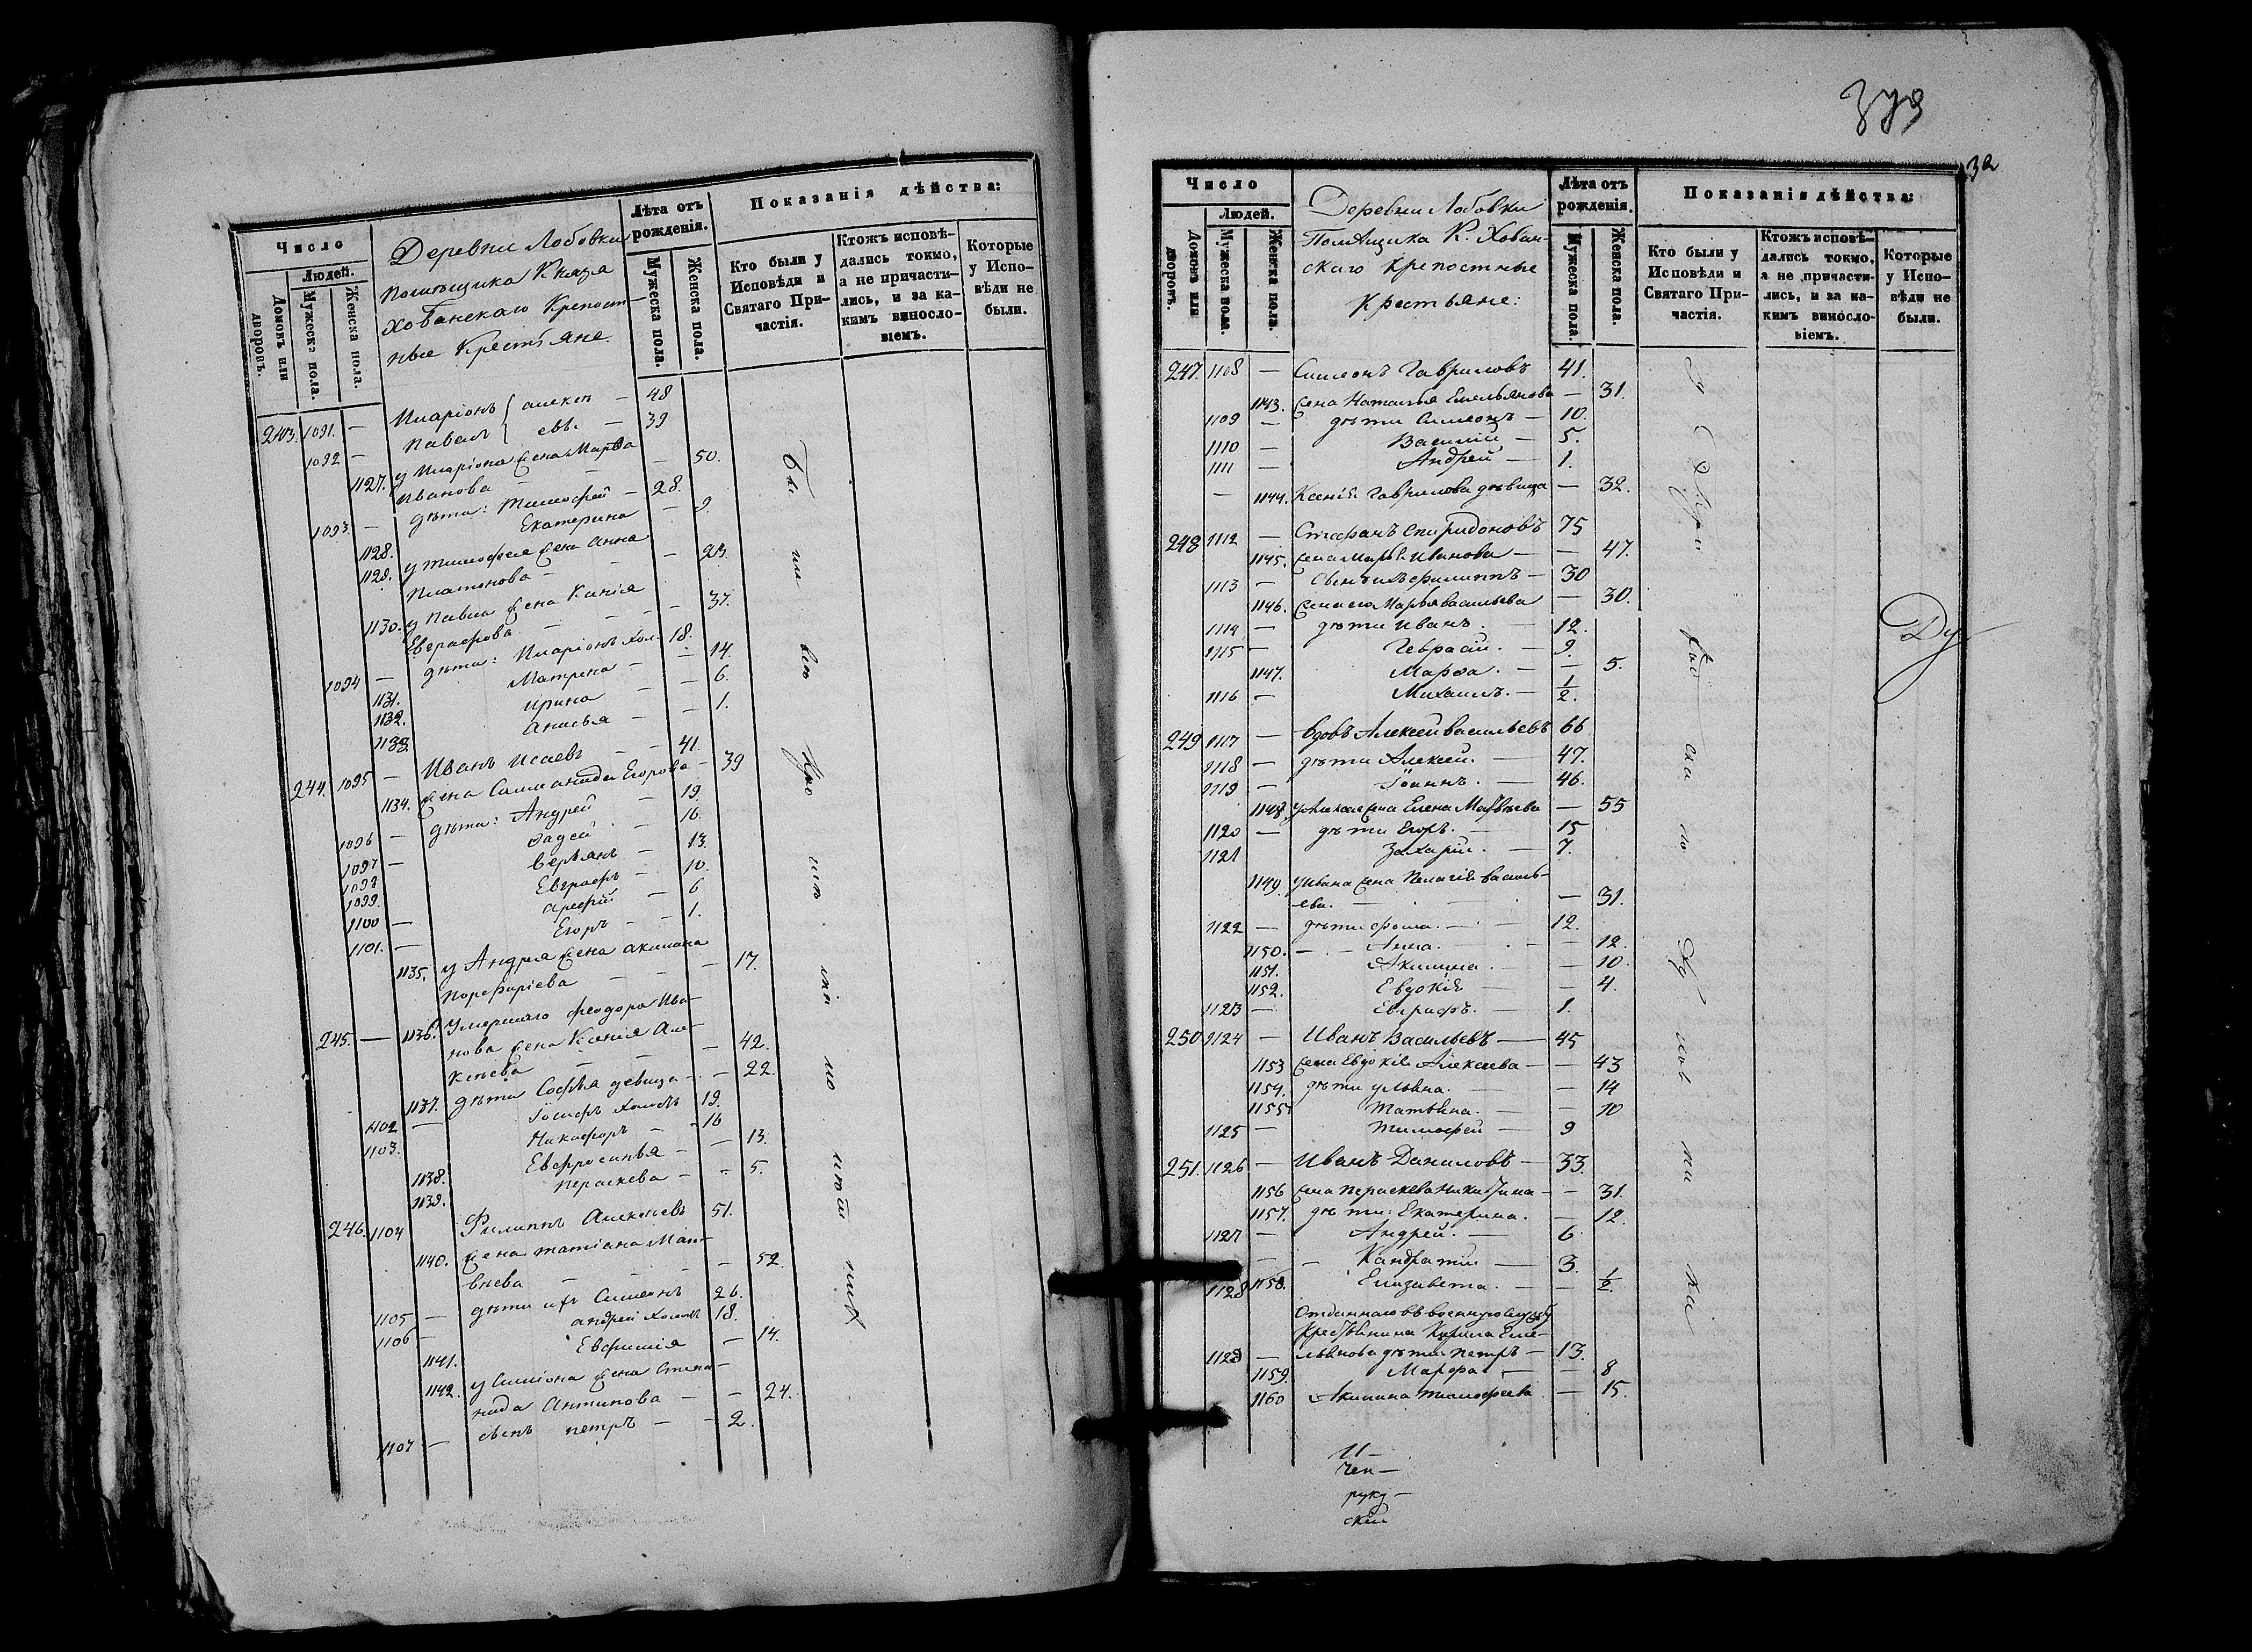 Число
Людей.
Домовъ или дворовъ.
Мужеска пола.
Женска пола.
Деревни Лобовки
помѣщика Князя
Хованскаго Крепост-
ные Крестьяне.
Лѣта отъ рожденія.
Мужеска пола.
Женска пола.
Показанія дѣйства:
Кто были у Исповѣди и Святаго При-частія.
Ктожъ исповѣ-дались токмо, а не причасти-лись, и за ка-кимъ винослo-віемъ.
Которые у Испо-вѣди не были.
243. 1091. — Иларіонъ — 48
1092 — Павелъ — 39
1127. у Иларіона жена Марѳа
Иванова — — 50.
1093. — дѣти: Тимофей — 28.
1128. Екатерина — 9.
1129. у Тимофея жена Анна
Платонова — — 23.
1130. у Павла жена Ксенія
Евграфова — — 37.
1094 — дѣти: Иларіонъ Хол. 18.
1131. Матрена — — 14.
1132. Ирина — — 6.
1133. Анисья — — 1.
244. 1095 — Иванъ Исаевъ — — 41.
1134. жена Саломанида Егорова — 39
1096 — дѣти: Андрей — 19.
1097 — Фадей — 16.
1098 Верьянъ — 13.
1099. Евграфъ — 10.
1100 — Арефій — 6
1101. — Егоръ — — 1.
1135. у Андрея жена Акилина
Порфиріева — — 17.
245. — 1136. Умершаго Феодора Ива-
нова жена Ксенія Але-
ксѣева — — 42.
1137. дѣти Софья девица — — 22.
1102 — Іосифъ Холостъ 19.
1103. Никифоръ — 16
1138. Евфросинья — — 13.
1139. Параскева — — 5.
246. 1104 Филиппъ Алексѣевъ 51.
1140. жена Татіана Мат-
вѣева — — — 52.
1105 — дѣти ихъ Симеонъ 26.
1106 — Андрей Холостъ 18.
1141. Евфимія — 14.
1142. у Симіона жена Степа-
нида Антипова — — 24.
1107 — сынъ Петръ — — 2.
379
32
Число
Людей.
Домовъ или дворовъ.
Мужеска пола.
Женска пола.
Деревни Лобовки
Помѣщика К. Хован-
скаго Крепостные
Крестьяне:
Лѣта отъ рожденія.
Мужеска пола.
Женска пола.
Показанія дѣйства:
Кто были у Исповѣди и Святаго При-частія.
Ктожъ исповѣ-дались токмо, а не причасти-лись, и за ка-кимъ винослo-віемъ.
Которые у Испо-вѣди не были.
247. 1108 — Симеонъ Гавриловъ 41.
1143. жена Наталья Емельянова — 31.
1109 — дѣти Симеонъ — 10.
1110 — Василій — 5.
1111 — Андрей — 1.
— 1144. Ксенія Гаврилова дѣвица — 32.
248 1112 — Стефанъ Спиридоновъ 75
1145. жена Марья Иванова — — 47.
1113 — Сынъ ихъ Филиппъ — 30
1146. жена его Марья Васильева — 30.
1114 — дѣти Иванъ. — 12.
1115 — Гервасій. — 9.
1147. Марѳа. — — 5.
1116 — Михаилъ. — 1/2.
249 1117 — Вдовъ Алексей Васильевъ 66
1118 — дѣти Алексей. — 47.
1119 — Іоаннъ. — 46.
1148. у Алексея жена Елена Матвѣева — 55
1120 — дѣти Егоръ. — 15
1121 Захарій. — 7.
1149. у Ивана жена Пелагія Василь-
ева. — — 31.
1122 — дѣти Фома. — 12.
1150. — Анна. — — 12.
1151. Акилина. — — 10.
1152. Евдокія — — 4.
1123 — Евграфъ. — 1.
250 1124 — Иванъ Васильевъ — 45
1153 жена Евдокія Алексеева — — 43
1154. дѣти Ульяна. — — 14
1155 Татьяна. — — 10
1125 — Тимофей — 9
251. 1126 — Иванъ Даниловъ — 33.
1156 жена Параскева Никитина — — 31.
1157. дѣти: Екатерина. — 12.
1127 — Андрей. — 6.
— — Кандратій — 3.
1128 1158. Елизавета. — — 1/2.
Отданнаго въ военную службу
Крестьянина Кирила Еме-
1129 — льянова дѣти Петръ — 13.
1159. Марфа — — 8
1160 Акилина Тимофеева — 15.